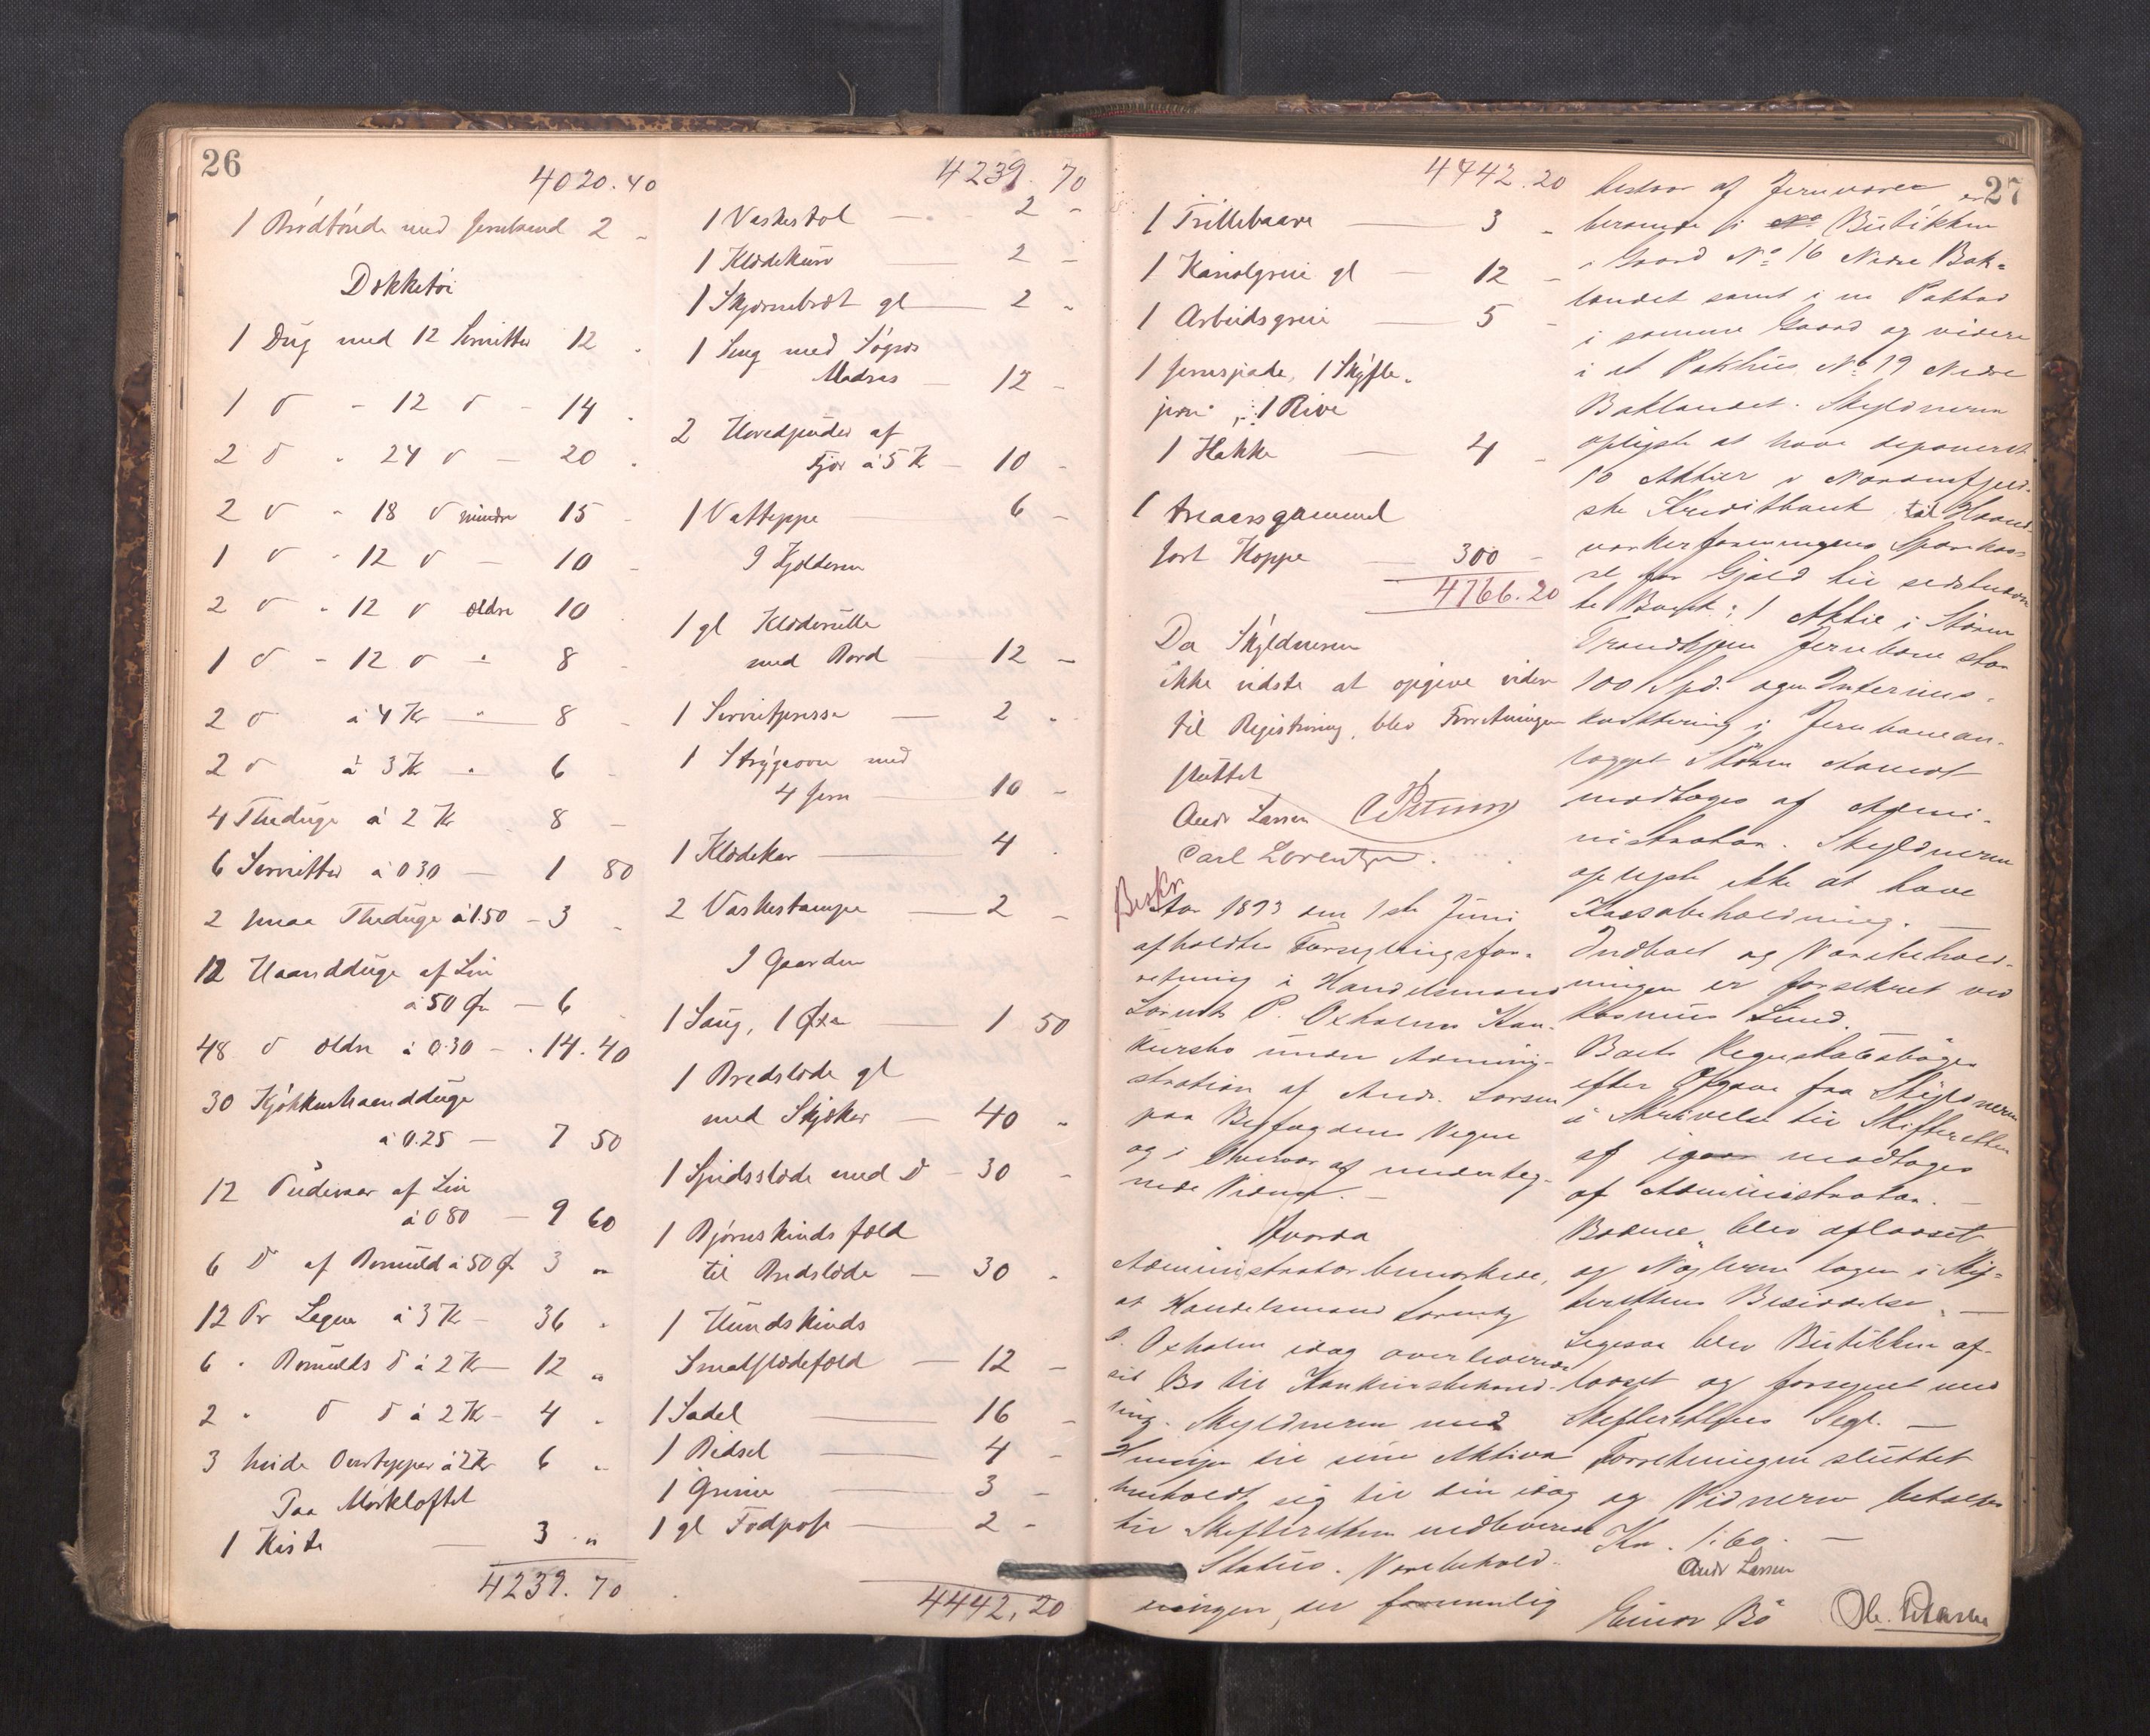 26
4020.40
1 Brödtönde med Jernbaand 2 "
Dækketøi
1 Dug med 12 Servietter 12 "
1 d - 12 d - 14 "
2 d " 24 d - 20 "
2 d - 18 d mindre 15 -
1 d - 12 d - 10 -
2 d - 12 d ældre 10
1 d - 12 d " 8 -
2 d à 4 Kr " 8 -
2 d à 3 Kr " 6 -
4 Theduge à 2 Kr 8 -
6 Servietter à 0 30 - 1 80
2 smaa Theduge à 1.50 - 3 "
12 Haandduge af Lin
à 50 Ør - 6
48 d ældre à 0.30 - 14.40
30 Kjøkkenhaandduge
à 0.25 - 7 50
12 Pudevaar af Lin
à 0 80 - 9 60
6 D af Bomuld à 50 Ø 3 "
12 Pr Lagen à 3 Kr - 36 "
6 " Bomulds d à 2 Kr - 12 "
2 " d d à 2 Kr - 4 "
3 hvide Overtepper à 2 Kr 6 "
Paa Mörkloftet
1 Kiste - 3 "
4239.70
4239.70
1 Vaskestol - 2 -
1 Klædekurv - 2 -
1 Skjærebræt gl - 2 "
1 Seng med Søgræs
Madras - 12 -
2 Hovedpuder af
Fjær à 5 K - 10 -
1 Vatteppe 6 -
I Kjælderen
1 gl Klæderulle
med Bord - 12 -
1 Servietpresse - 2 "
1 Strygeovn med
4 Jern - 10 -
1 Klædekar - 4 "
2 Vaskestampe - 2 -
I Gaarden
1 Saug, 1 Øxe - 1 50
1 Bredslæde gl
med Skjæker - 40 "
1 Spidsslæde med D - 30 -
1 Bjørneskinds fæld
til Bredslæde - 30 "
1 Hundskinds
Smalslædefæld - 12 -
1 Sadel - 16 -
1 Bidsel - 4 -
1 Grime - 3 -
1 gl Fodpose - 2 -
4442,20
27
4442.20
1 Trillebaare - 3 "
1 Kariolgreie gl - 12 -
1 Arbeidsgreie - 5 -
1 Jernspade, 1 Skyffle"
jern, 1 Rive
1 Hakke - 4 -
1 treaarsgammel
sort Hoppe - 300 -
4766.20
Da Skyldneren
ikke vidste at opgive videre
til Registrering, blev Forretningen
sluttet
Andr Larsen
Carl Lorentzen
Beskr
Aar 1893 den 1ste Juni
afholdtes Forseglingsfor=
retning i Handelsmand
Lorentz P. Oxholms Kon-
kursbo under Admini-
stration af Andr. Larsen
paa Byfogdens Vegne
og i Overvær af underteg-
nede Vidner. -
Hvorda
Administrator bemærkede,
at Handelsmand Lorentz
P. Oxholm idag overleverede
sit Bo til Konkursbehand-
ling. Skyldneren med
Hensyn til sine Aktiva
henholdt sig til sin idag
til Skifteretten indleverede
Status. Varebehold-
ningen, der fornemmelig
bestaar af Jernvarer er
beroende i Butikken
i Gaard No 16 Nedre Bak=
landet samt i en Pakbod
i samme Gaard og videre
i et Pakhus No 19 Nedre
Baklandet. Skyldneren
oplyste at have deponeret
10 Aktier i Nordenfjeld-
ske Kreditbank til Haand-
værkerforeningens Sparekas-
se for Gjæld til sidstnævn
te Bank; 1 Aktie i Støren
Trondhjem Jernbane stor
100 Spd. ogsaa Interims-
kvittering i Jernbanean-
lægget Støren Aamot
modtoges af Admi-
nistrator. Skyldneren
oplyste ikke at have
Kassabeholdning. -
Indboet og Varebehold-
ningen er forsikret ved
Rasmus Lund.
Boets Regnskabsbøger
efter Opgave fra Skyldneren
i Skrivelse til Skifteretten
af igaar modtoges
af Administrator. -
Boderne blev aflaaset
og Nøglerne tagen i Skif=
terettens Besiddelse. -
Ligesaa blev Butikken af-
laaset og forseglet med
Skifterettens Segl. -
Forretningen sluttet
og Vidnerne betaltes
Kr. 1.60. -
Andr Larsen
Einar Bö